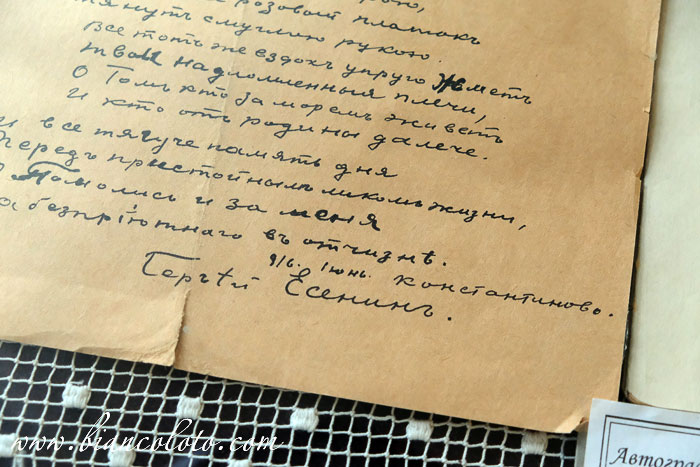 розовый платокъ
тянутъ смуглою рукою.
Все тотъ же вздохъ упруго жметъ
твои надломленныя плечи,
О томъ кто за моремъ живетъ
И кто отъ родины далече.
И все тягуче память дня
Передъ пристойнымъ ликомъ жизни,
О Помолись и за меня
за безпрiютнаго въ отчизнѣ.
916. Iюнь. Константиново.
Сергѣй Есенинъ.
www.biancoloto.com
Автогра